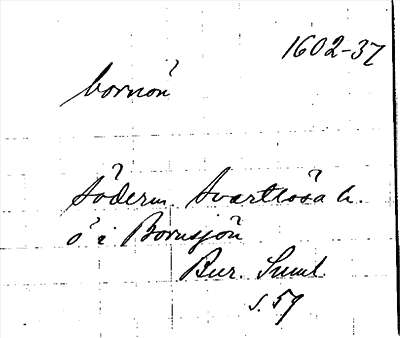 1602-37
bornön
Söderm. Svartlösa h.
ö i Bornsjön
Bur. Suml.
s. 59